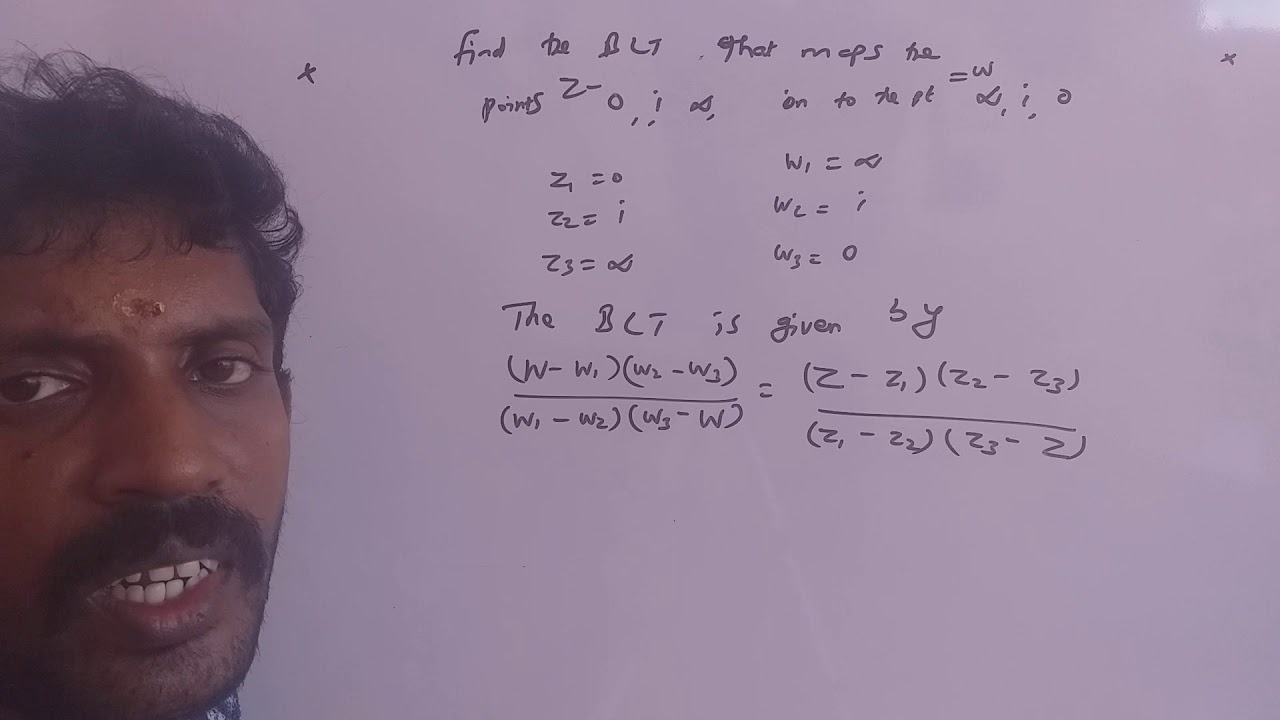 find the BLT. that maps the
points Z- 0, i, ∞, on to the pt =w ∞, i, 0
z₁ = 0 w₁ = ∞
z₂ = i w₂ = i
z₃ = ∞ w₃ = 0
The BLT is given by
(w - w₁)(w₂ - w₃) = (z - z₁)(z₂ - z₃)
(w₁ - w₂)(w₃ - w) (z₁ - z₂)(z₃ - z)